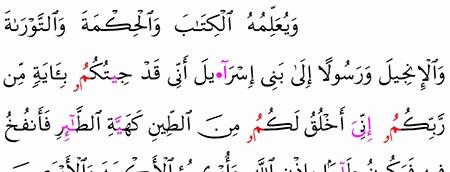 وَيُعَلِّمُهُ الْكِتَٰبَ وَالْحِكْمَةَ وَالتَّوْرَىٰةَ
وَالْإِنجِيلَ وَرَسُولًا إِلَىٰ بَنِى إِسْرَآءِيلَ أَنِّى قَدْ جِيتُكُمُۥ بِـَٔايَةٍ مِّن
رَّبِّكُمُۥ إِنِّىَ أَخْلُقُ لَكُمُۥ مِنَ الطِّينِ كَهَيَّةِ الطَّٰٓئِرِ فَأَنفُخُ